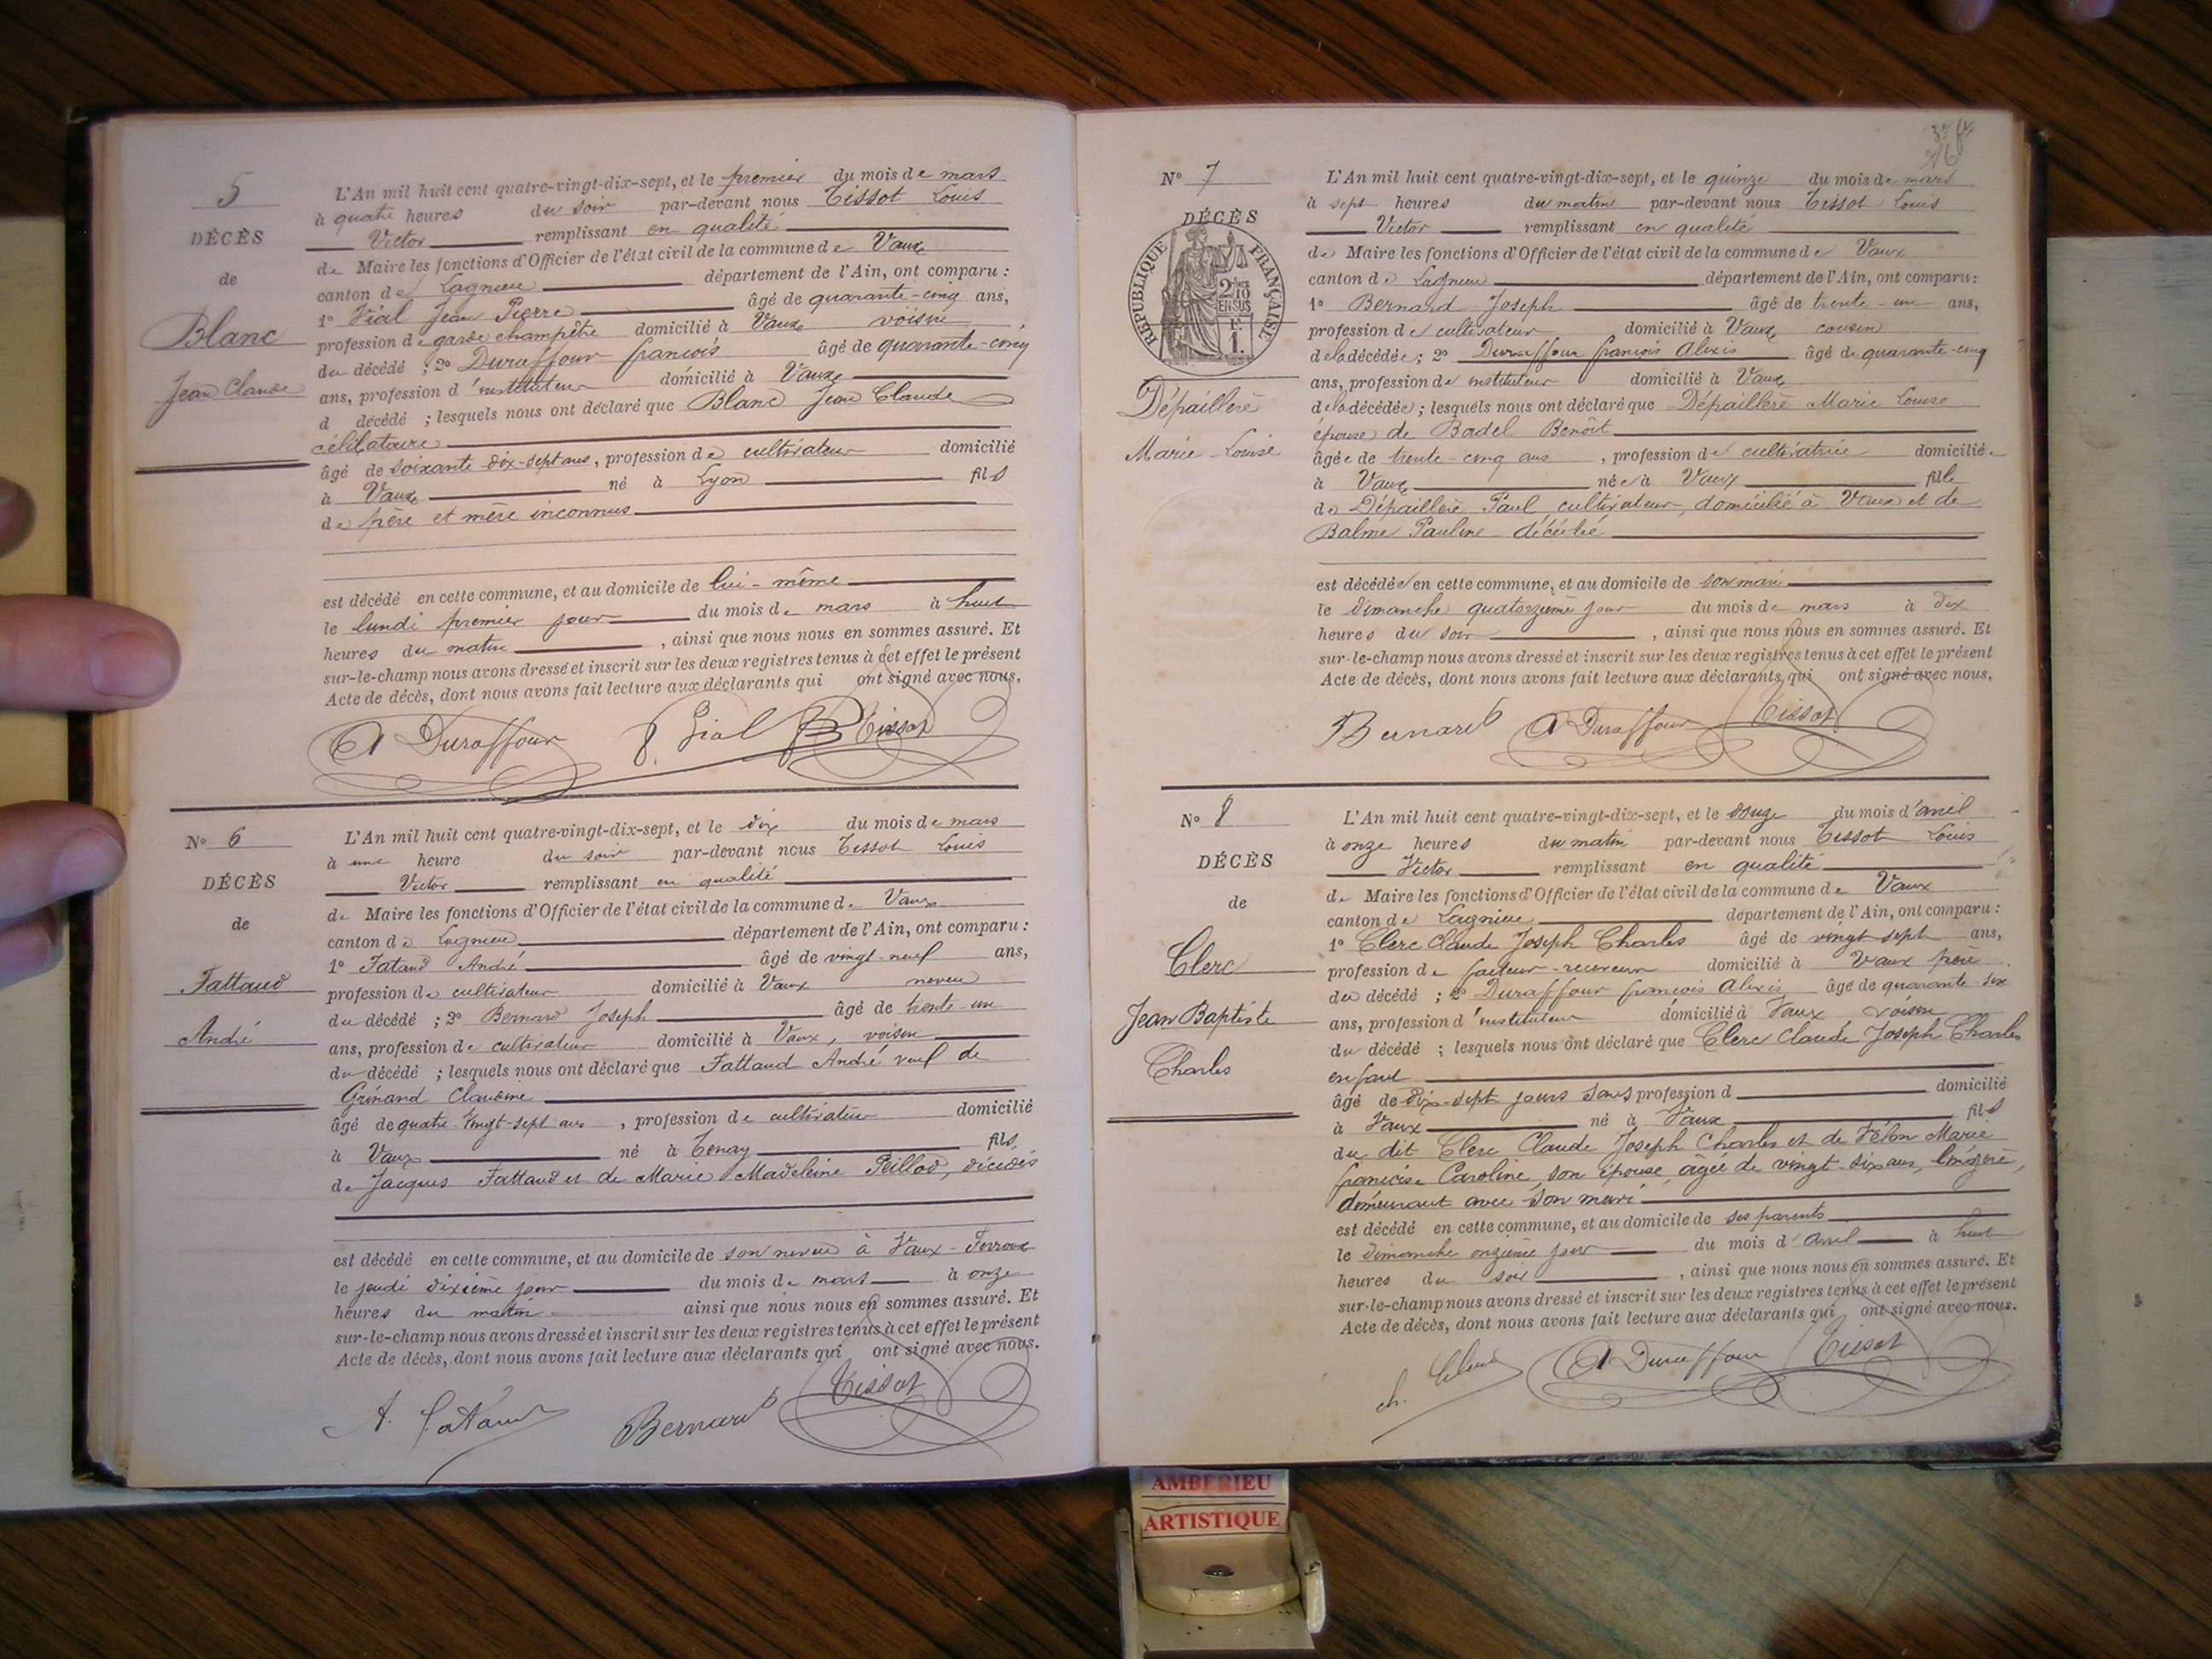 5
DÉCÈS
de
Blanc
Jean Claude
L'An mil huit cent quatre-vingt-dix-sept, et le premier du mois de mars
à quatre heures du soir par-devant nous Tissot Louis
Victor remplissant en qualité
de Maire les fonctions d'Officier de l'état civil de la commune de Vaux
canton de Lagnieu département de l'Ain, ont comparu :
1° Vial Jean Pierre âgé de quarante-cinq ans,
profession de garde champêtre domicilié à Vaux voisin
du décédé ; 2° Duraffour françois âgé de quarante-cinq
ans, profession d'instituteur domicilié à Vaux
d décédé ; lesquels nous ont déclaré que Blanc Jean Claude
célibataire
âgé de soixante-dix-sept ans, profession de cultivateur domicilié
à Vaux né à Lyon fils
de père et mère inconnus
est décédé en cette commune, et au domicile de lui-même
le lundi premier jour du mois de mars à huit
heures du matin, ainsi que nous nous en sommes assuré. Et
sur-le-champ nous avons dressé et inscrit sur les deux registres tenus à cet effet le présent
Acte de décès, dont nous avons fait lecture aux déclarants qui ont signé avec nous.
A Duraffour P. Vial Tissot
N° 6
DÉCÈS
de
Fattaud
André
L'An mil huit cent quatre-vingt-dix-sept, et le dix du mois de mars
à une heure du soir par-devant nous Tissot Louis
Victor remplissant en qualité
de Maire les fonctions d'Officier de l'état civil de la commune de Vaux
canton de Lagnieu département de l'Ain, ont comparu :
1° Fataud André âgé de vingt-neuf ans,
profession de cultivateur domicilié à Vaux neveu
du décédé ; 2° Bernard Joseph âgé de trente-un
ans, profession de cultivateur domicilié à Vaux, voisin
du décédé ; lesquels nous ont déclaré que Fattaud André veuf de
Grinand Claudine
âgé de quatre-vingt-sept ans, profession de cultivateur domicilié
à Vaux né à Tenay fils
de Jacques Fattaud et de Marie Madeleine Peillod, décédés
est décédé en cette commune, et au domicile de son neveu à Vaux-Ferroux
le jeudi dixième jour du mois de mars à onze
heures du matin ainsi que nous nous en sommes assuré. Et
sur-le-champ nous avons dressé et inscrit sur les deux registres tenus à cet effet le présent
Acte de décès, dont nous avons fait lecture aux déclarants qui ont signé avec nous.
A. Fataud Bernard Tissot
N° 7
DÉCÈS
RÉPUBLIQUE FRANÇAISE
2/10
EN SUS
F.
1.
Dépaillère
Marie-Louise
L'An mil huit cent quatre-vingt-dix-sept, et le quinze du mois de mars
à sept heures du matin par-devant nous Tissot Louis
Victor remplissant en qualité
de Maire les fonctions d'Officier de l'état civil de la commune de Vaux
canton de Lagnieu département de l'Ain, ont comparu :
1° Bernard Joseph âgé de trente-un ans,
profession de cultivateur domicilié à Vaux cousin
de la décédée ; 2° Duraffour françois Alexis âgé de quarante-cinq
ans, profession de instituteur domicilié à Vaux
de la décédée ; lesquels nous ont déclaré que Dépaillère Marie Louise
épouse de Badel Benoit
âgée de trente-cinq ans, profession de cultivatrice domiciliée
à Vaux née à Vaux fille
de Dépaillère Paul, cultivateur, domicilié à Vaux et de
Balme Pauline décédée
est décédée en cette commune, et au domicile de son mari
le dimanche quatorzième jour du mois de mars à dix
heures du soir, ainsi que nous nous en sommes assuré. Et
sur-le-champ nous avons dressé et inscrit sur les deux registres tenus à cet effet le présent
Acte de décès, dont nous avons fait lecture aux déclarants qui ont signé avec nous.
Bernard A Duraffour Tissot
N° 8
DÉCÈS
de
Clerc
Jean Baptiste
Charles
L'An mil huit cent quatre-vingt-dix-sept, et le douze du mois d'avril
à onze heures du matin par-devant nous Tissot Louis
Victor remplissant en qualité
de Maire les fonctions d'Officier de l'état civil de la commune de Vaux
canton de Lagnieu département de l'Ain, ont comparu :
1° Clerc Claude Joseph Charles âgé de vingt-sept ans,
profession de facteur-receveur domicilié à Vaux père
du décédé ; 2° Duraffour françois Alexis âgé de quarante-six
ans, profession d'instituteur domicilié à Vaux voisin
du décédé ; lesquels nous ont déclaré que Clerc Claude Joseph Charles
enfant
âgé de dix-sept jours sans profession d domicilié
à Vaux né à Vaux fils
du dit Clerc Claude Joseph Charles et de Vélon Marie
françoise Caroline, son épouse, âgée de vingt-six ans, lingère,
demeurant avec son mari
est décédé en cette commune, et au domicile de ses parents
le dimanche onzième jour du mois d'avril à huit
heures du soir, ainsi que nous nous en sommes assuré. Et
sur-le-champ nous avons dressé et inscrit sur les deux registres tenus à cet effet le présent
Acte de décès, dont nous avons fait lecture aux déclarants qui ont signé avec nous.
ch. Clerc A Duraffour Tissot
AMBERIEU
ARTISTIQUE